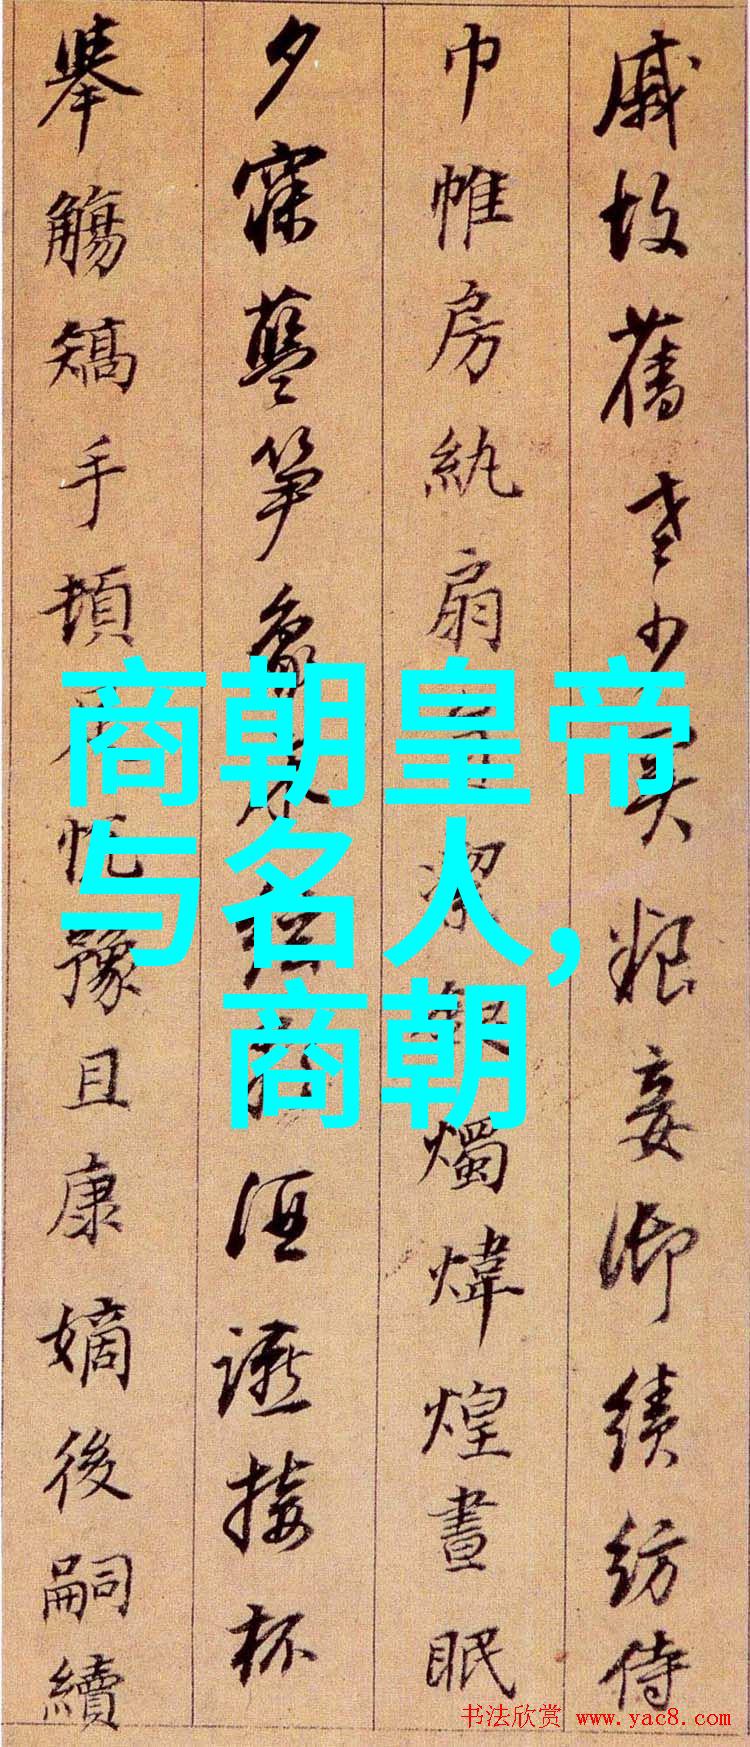 戚故舊老少異粮妾御績紡侍
巾帷房紈扇潔燭煒煌晝眠
夕寐藍笋象絃酒讌接杯
舉觴矯手頓足悅豫且康嫡後嗣續
商朝皇帝
与名人,
商朝
书法欣赏 www.yac8.com